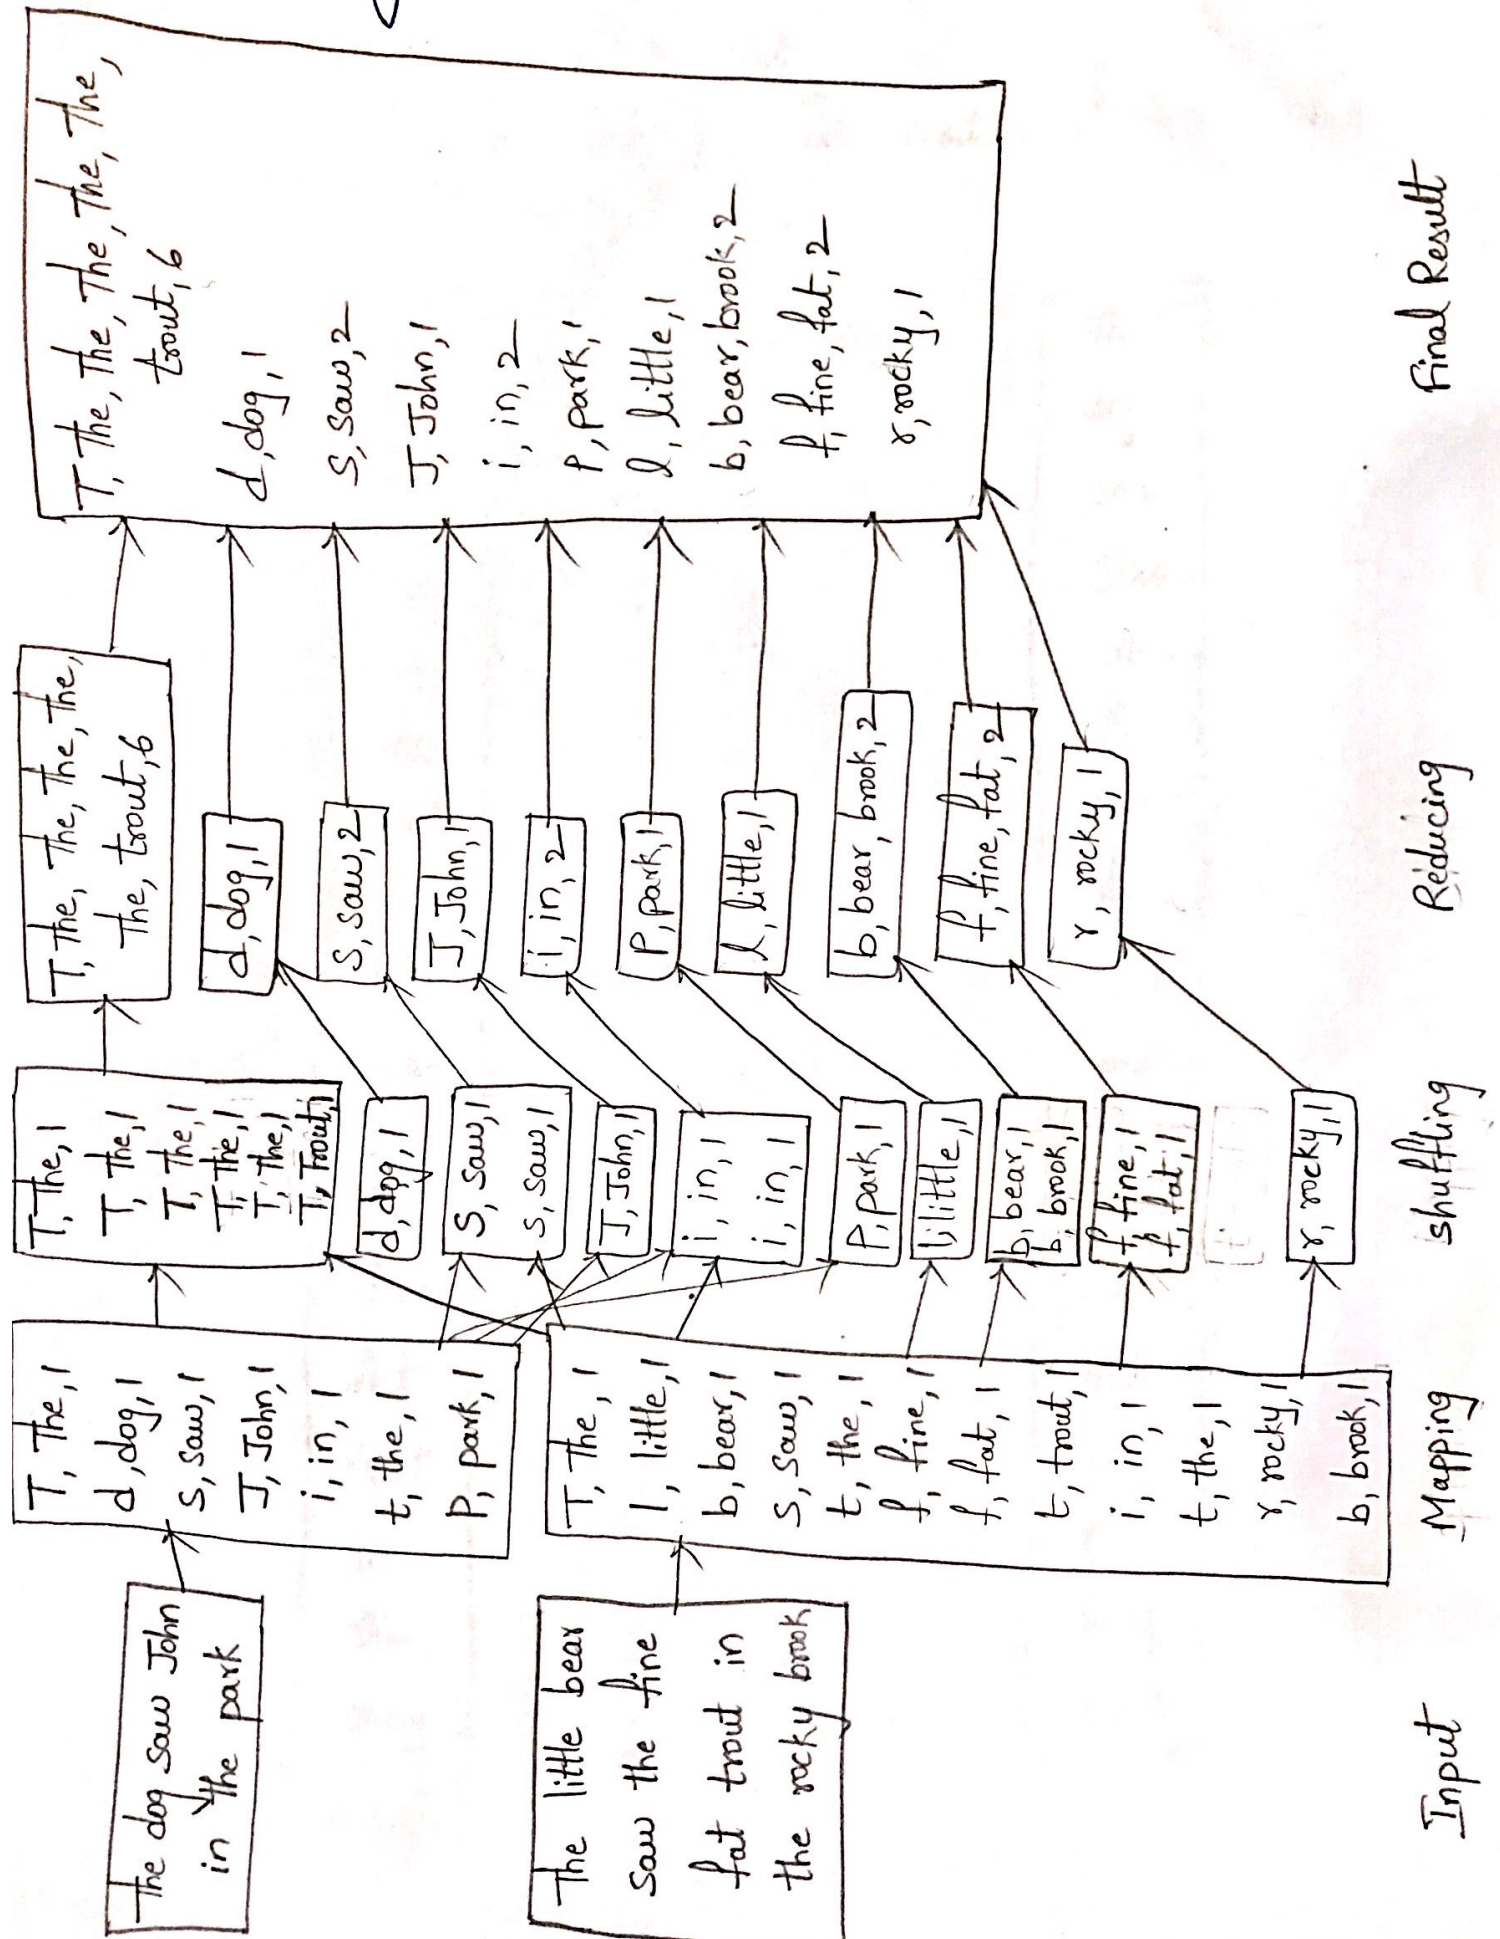 The dog saw John
in the park
The little bear
saw the fine
fat trout in
the rocky brook
Input
T, The, 1
d, dog, 1
S, saw, 1
J, John, 1
i, in, 1
t, the, 1
P, park, 1
T, The, 1
l, little, 1
b, bear, 1
S, saw, 1
t, the, 1
f, fine, 1
f, fat, 1
t, trout, 1
i, in, 1
t, the, 1
r, rocky, 1
b, brook, 1
Mapping
T, The, 1
T, The, 1
T, The, 1
T, The, 1
T, The, 1
T, Trout, 1
d, dog, 1
S, saw, 1
S, saw, 1
J, John, 1
i, in, 1
i, in, 1
P, park, 1
l, little, 1
b, bear, 1
b, brook, 1
f, fine, 1
f, fat, 1
r, rocky, 1
shuffling
T, The, The, The, The,
The, trout, 6
d, dog, 1
S, saw, 2
J, John, 1
i, in, 2
P, park, 1
l, little, 1
b, bear, brook, 2
f, fine, fat, 2
r, rocky, 1
Reducing
T, The, The, The, The, The,
trout, 6
d, dog, 1
S, saw, 2
J, John, 1
i, in, 2
P, park, 1
l, little, 1
b, bear, brook, 2
f, fine, fat, 2
r, rocky, 1
Final Result